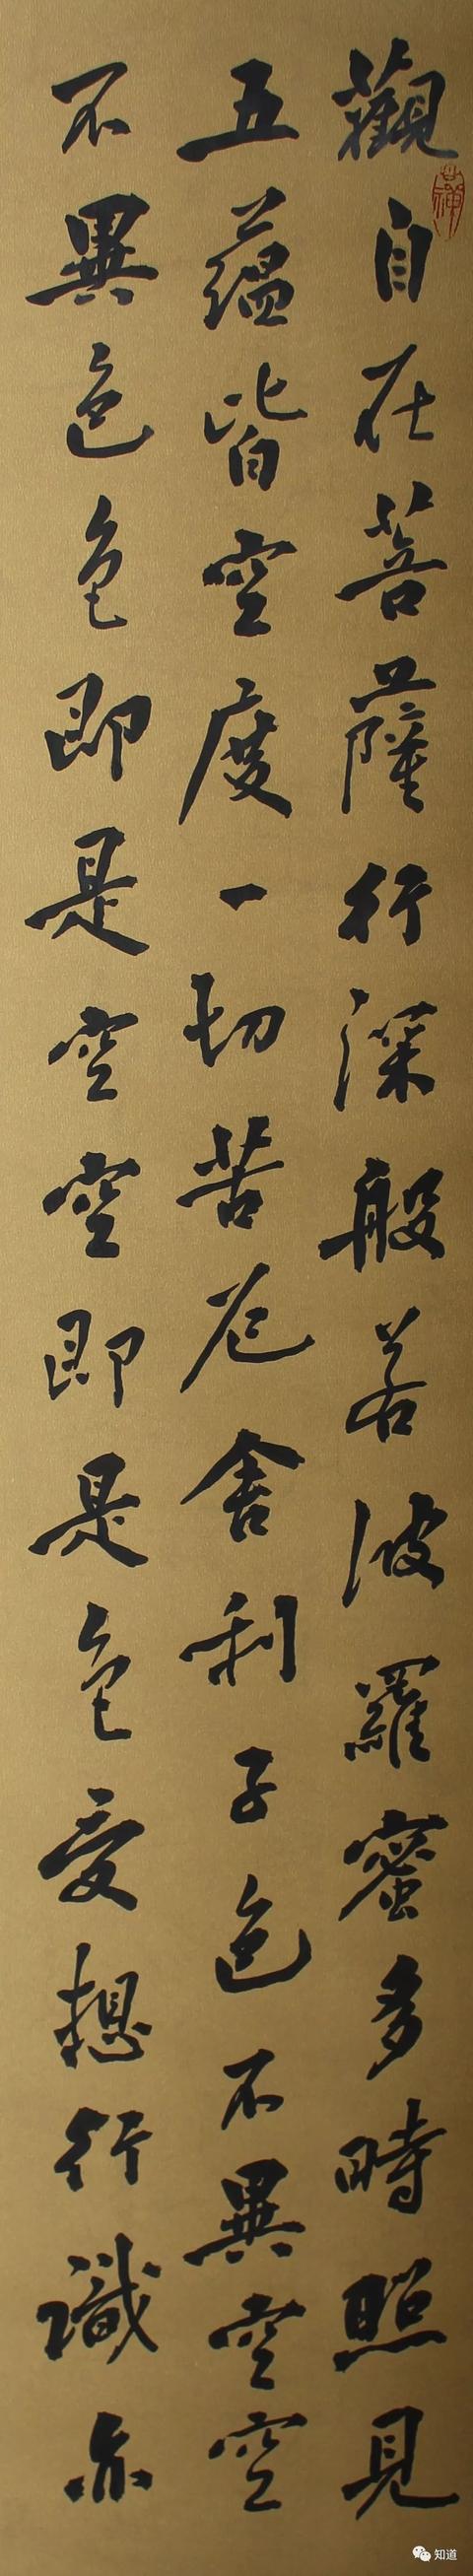 觀自在菩薩行深般若波羅蜜多時照見
五蘊皆空度一切苦厄舍利子色不異空空
不異色色即是空空即是色受想行識亦
知道